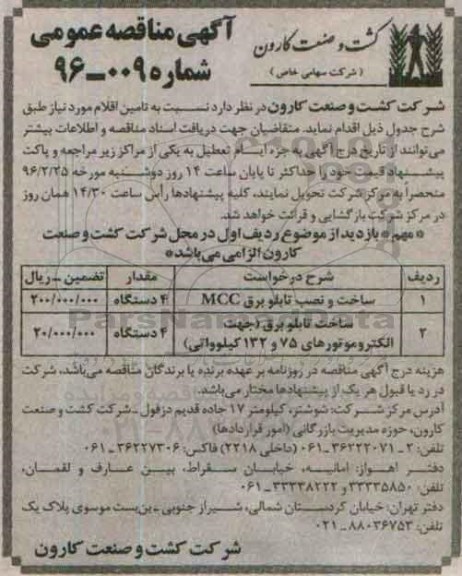 کشت و صنعت کارون
( شرکت سهامی خاص )
آگهی مناقصه عمومی
شماره ۰۰۹-۹۶
شرکت کشت و صنعت کارون در نظر دارد نسبت به تامین اقلام مورد نیاز طبق
شرح جدول ذیل اقدام نماید. متقاضیان جهت دریافت اسناد مناقصه و اطلاعات بیشتر
می‌توانند از تاریخ درج آگهی به جزء ایام تعطیل به یکی از مراکز زیر مراجعه و پاکت
پیشنهاد قیمت خود را حداکثر تا پایان ساعت ۱۴ روز دوشنبه مورخه ۹۶/۲/۲۵
منحصراً به مرکز شرکت تحویل نمایند، کلیه پیشنهادها رأس ساعت ۱۴/۳۰ همان روز
در مرکز شرکت بازگشایی و قرائت خواهد شد.
*مهم* بازدید از موضوع ردیف اول در محل شرکت کشت و صنعت
کارون الزامی می‌باشد*
ردیف شرح درخواست مقدار تضمین - ریال
۱ ساخت و نصب تابلو برق MCC ۴ دستگاه ۲۰۰/۰۰۰/۰۰۰
۲ ساخت تابلو برق (جهت الکتروموتورهای ۷۵ و ۱۳۲ کیلوواتی) ۴ دستگاه ۲۰/۰۰۰/۰۰۰
هزینه درج آگهی مناقصه در روزنامه بر عهده برنده یا برندگان مناقصه می‌باشد، شرکت
در رد یا قبول هر یک از پیشنهادها مختار می‌باشد.
آدرس مرکز شرکت: شوشتر، کیلومتر ۱۷ جاده قدیم دزفول - شرکت کشت و صنعت
کارون، حوزه مدیریت بازرگانی (امور قراردادها)
تلفن: ۲ - ۳۶۲۲۲۰۷۱-۰۶۱ (داخلی ۲۲۱۸) فاکس: ۳۶۲۲۷۳۰۶-۰۶۱
دفتر اهواز: امانیه، خیابان سقراط، بین عارف و لقمان،
تلفن: ۳۳۳۳۵۸۵۰ و ۳۳۳۳۸۲۲۲-۰۶۱
دفتر تهران: خیابان کردستان شمالی، شیراز جنوبی - بن‌بست موسوی پلاک یک
تلفن: ۸۸۰۳۶۷۵۳-۰۲۱
شرکت کشت و صنعت کارون
ParsNamadData